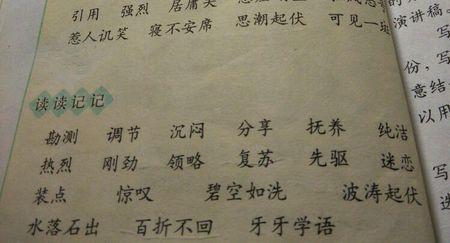 引用 强烈 居庸关
惹人讥笑 寝不安席 思潮起伏 可见一斑
读读记记
勘测 调节 沉闷 分享 抚养 纯洁
热烈 刚劲 领略 复苏 先驱 迷恋
装点 惊叹 碧空如洗 波涛起伏
水落石出 百折不回 牙牙学语
演讲稿。
写
份，写
意结
以用
写
选